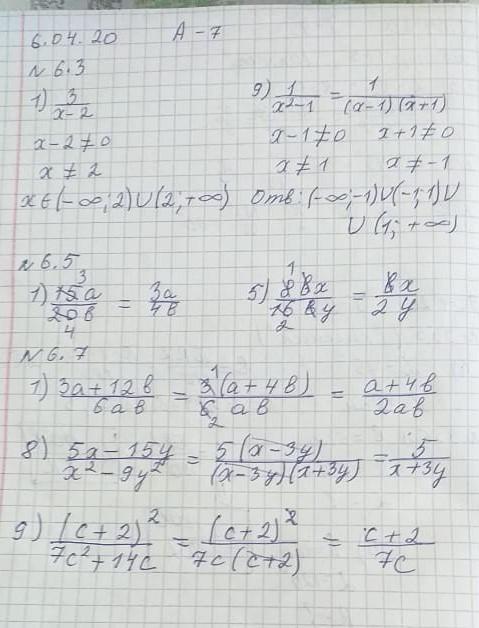 6.04.20 А-7
№6.3
1) 3/(x-2)
x-2≠0
x≠2
x∈(-∞;2)∪(2;+∞)
9) 1/(x²-1) = 1/((x-1)(x+1))
x-1≠0 x+1≠0
x≠1 x≠-1
Отв: (-∞;-1)∪(-1;1)∪
∪(1;+∞)
№6.5
1) 15a/20b = 3a/4b
5) 88x/16by = 8x/2y
№6.7
1) (3a+12b)/6ab = 3(a+4b)/6ab = (a+4b)/2ab
8) (5x-15y)/(x²-9y²) = 5(x-3y)/((x-3y)(x+3y)) = 5/(x+3y)
9) (c+2)²/(7c²+14c) = (c+2)²/(7c(c+2)) = (c+2)/7c